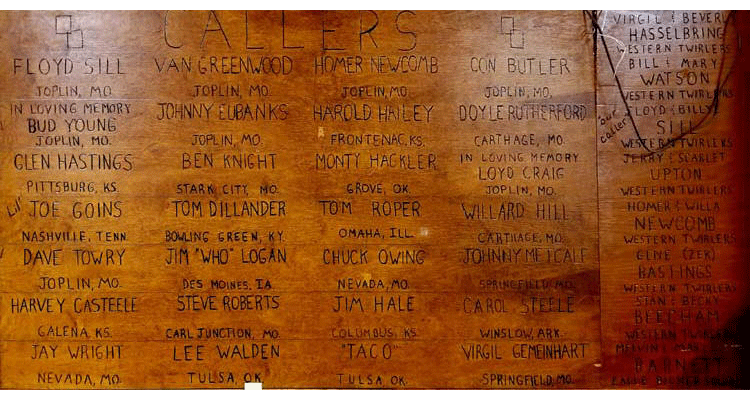 CALLERS
FLOYD SILL
JOPLIN, MO.
IN LOVING MEMORY
BUD YOUNG
JOPLIN, MO.
GLEN HASTINGS
PITTSBURG, KS.
Lil' JOE GOINS
NASHVILLE, TENN.
DAVE TOWRY
JOPLIN, MO.
HARVEY CASTEELE
GALENA, KS.
JAY WRIGHT
NEVADA, MO.
VAN GREENWOOD
JOPLIN, MO.
JOHNNY EUBANKS
JOPLIN, MO.
BEN KNIGHT
STARK CITY, MO.
TOM DILLANDER
BOWLING GREEN, KY.
JIM "WHO" LOGAN
DES MOINES, IA
STEVE ROBERTS
CARL JUNCTION, MO.
LEE WALDEN
TULSA, OK
HOMER NEWCOMB
JOPLIN, MO.
HAROLD HAILEY
FRONTENAC, KS.
MONTY HACKLER
GROVE, OK.
TOM ROPER
OMAHA, ILL.
CHUCK OWING
NEVADA, MO.
JIM HALE
COLUMBUS, KS.
"TACO"
TULSA, OK
CON BUTLER
JOPLIN, MO.
DOYLE RUTHERFORD
CARTHAGE, MO.
IN LOVING MEMORY
LOYD CRAIG
JOPLIN, MO.
WILLARD HILL
CARTHAGE, MO.
JOHNNY METCALF
SPRINGFIELD, MO.
CAROL STEELE
WINSLOW, ARK.
VIRGIL GEMEINHART
SPRINGFIELD, MO.
VIRGIL & BEVERL
HASSELBRING
WESTERN TWIRLERS
BILL & MARY
WATSON
WESTERN TWIRLERS
FLOYD & BILLY
"our caller"
SILL
WESTERN TWIRLERS
JERRY & SCARLET
UPTON
WESTERN TWIRLERS
HOMER & WILLA
NEWCOMB
WESTERN TWIRLERS
CLINE (ZEK)
HASTINGS
WESTERN TWIRLERS
STAN & BECKY
BEEPHAM
WESTERN TWIRLERS
MELVIN &
BARNETT